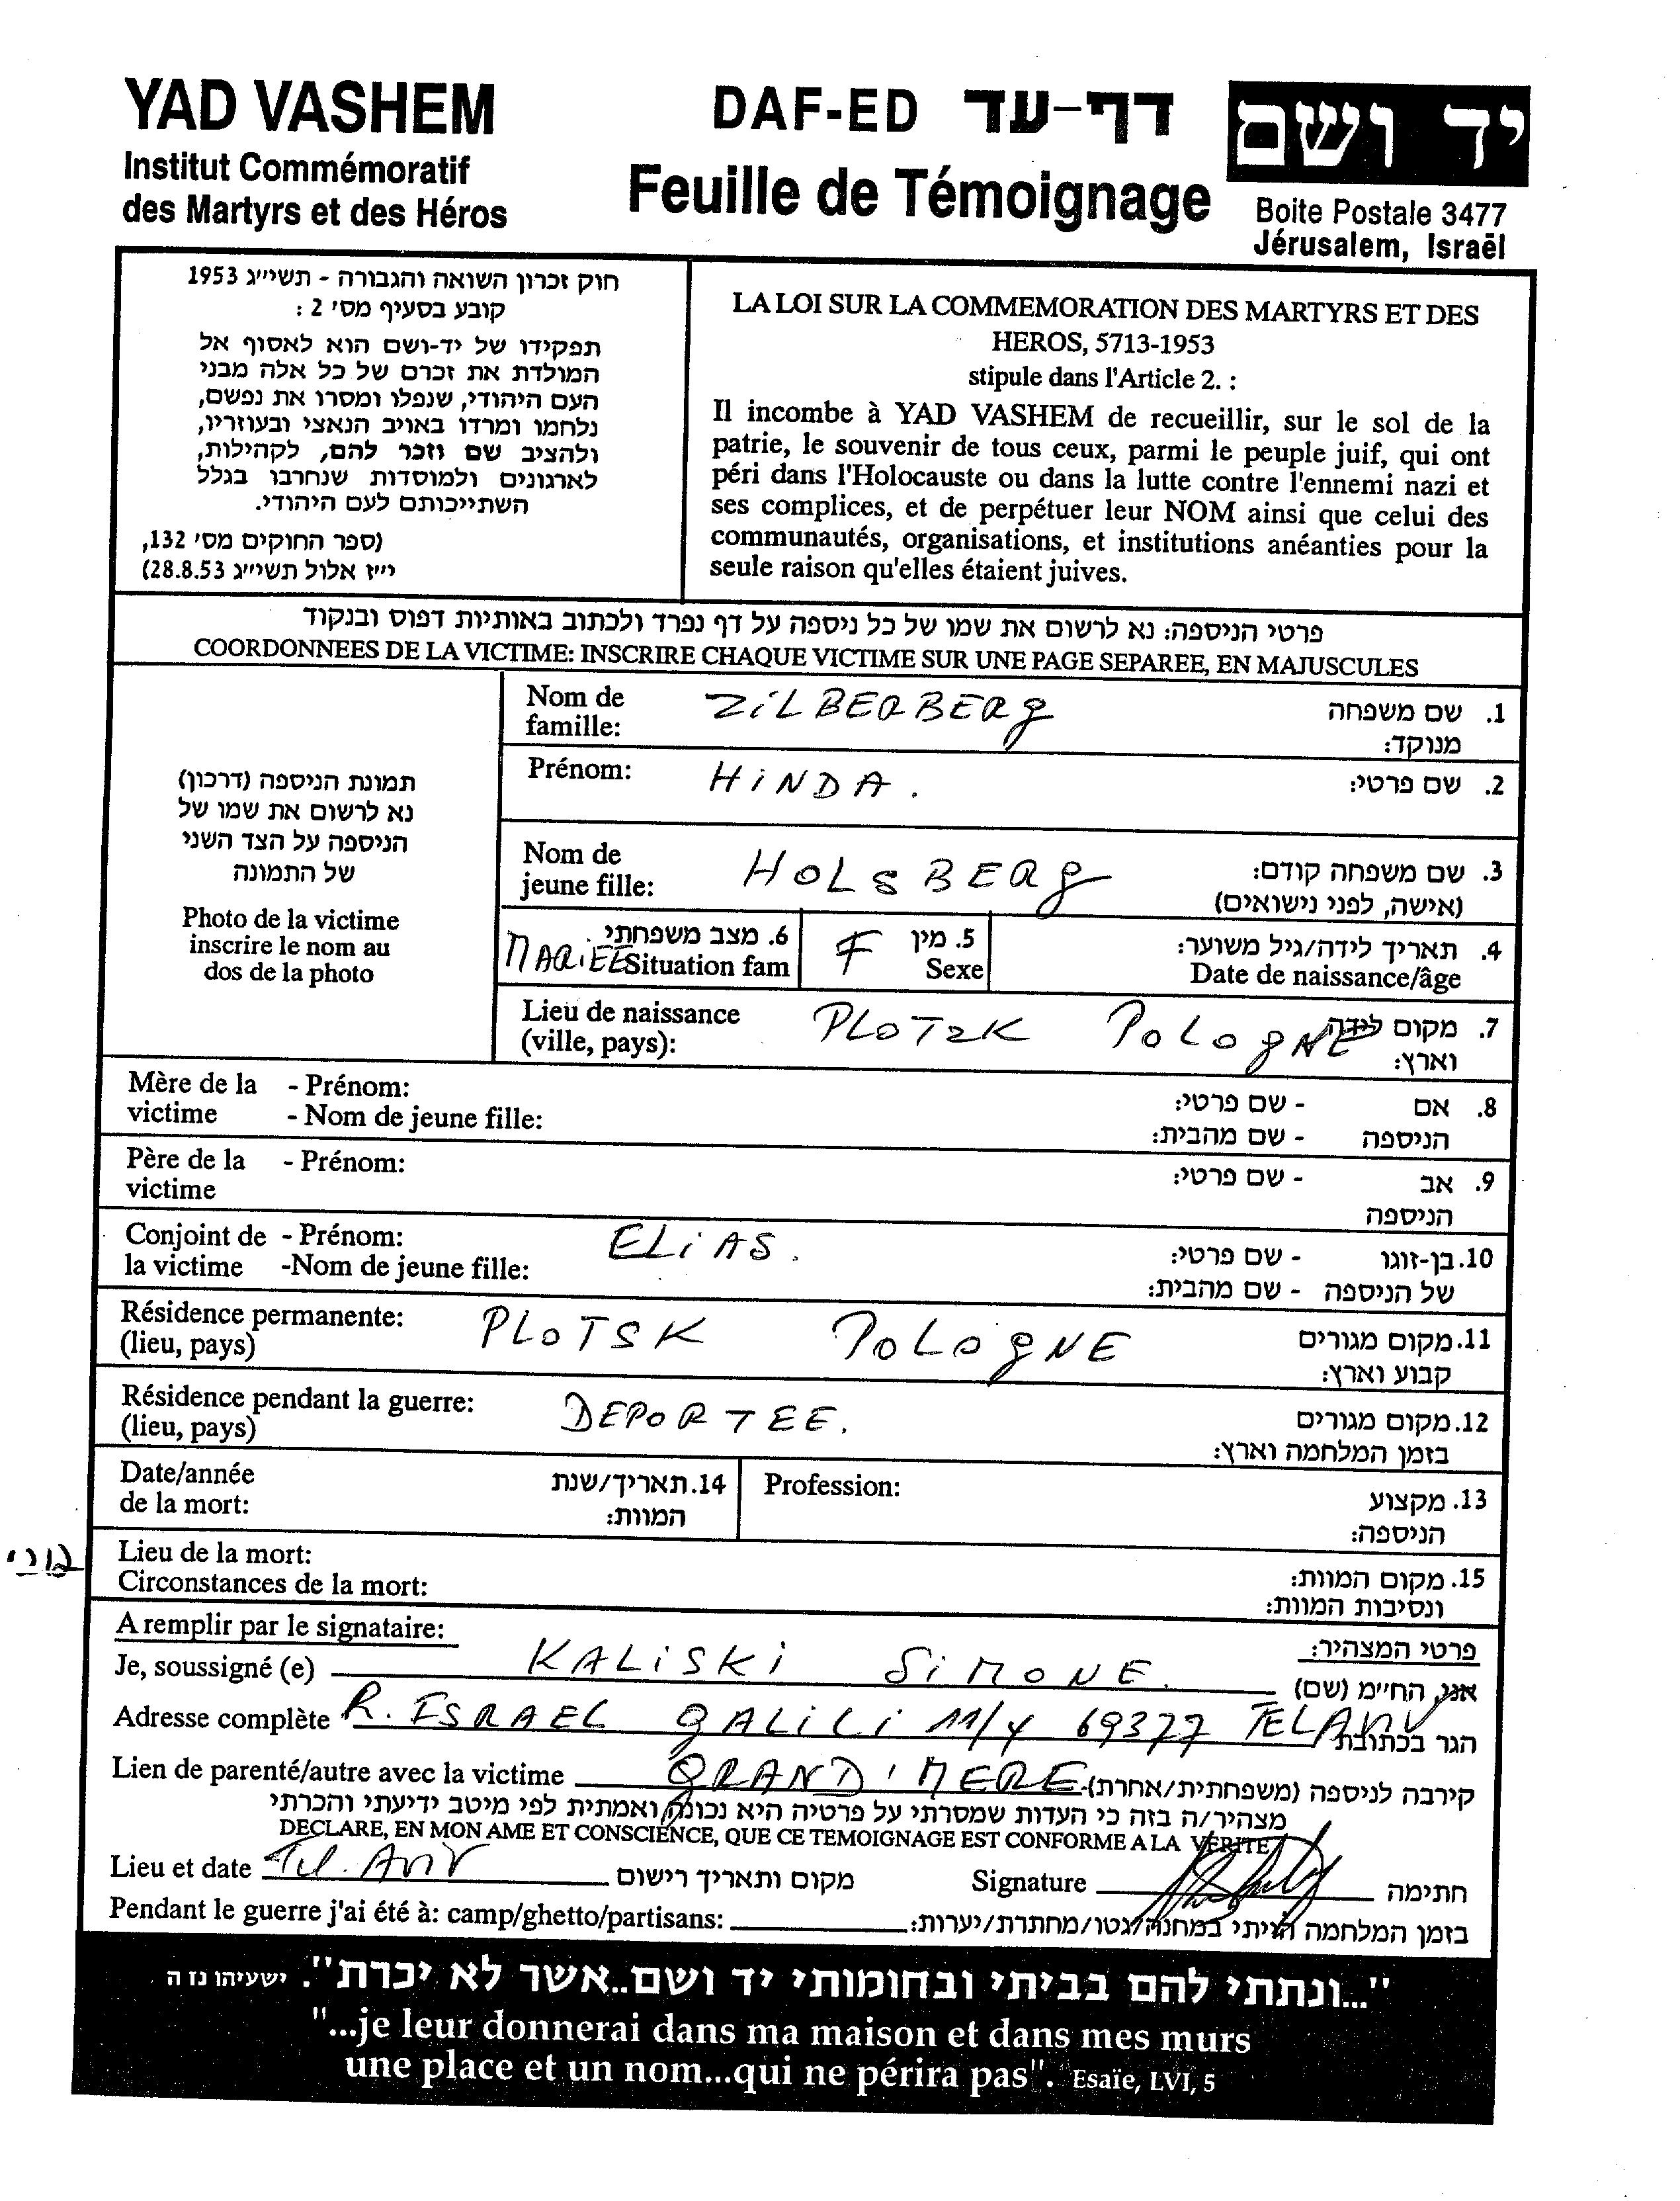 YAD VASHEM
Institut Commémoratif
des Martyrs et des Héros
DAF-ED דף-עד
Feuille de Témoignage
יד ושם
Boite Postale 3477
Jérusalem, Israël
חוק זכרון השואה והגבורה - תשי״ג 1953
קובע בסעיף מס׳ 2 :
תפקידו של יד-ושם הוא לאסוף אל
המולדת את זכרם של כל אלה מבני
העם היהודי, שנפלו ומסרו את נפשם,
נלחמו ומרדו באויב הנאצי ובעוזריו,
ולהציב שם וזכר להם, לקהילות,
לארגונים ולמוסדות שנחרבו בגלל
השתייכותם לעם היהודי.
(ספר החוקים מס׳ 132,
י״ז אלול תשי״ג 28.8.53)
LA LOI SUR LA COMMEMORATION DES MARTYRS ET DES
HEROS, 5713-1953
stipule dans l'Article 2. :
Il incombe à YAD VASHEM de recueillir, sur le sol de la
patrie, le souvenir de tous ceux, parmi le peuple juif, qui ont
péri dans l'Holocauste ou dans la lutte contre l'ennemi nazi et
ses complices, et de perpétuer leur NOM ainsi que celui des
communautés, organisations, et institutions anéanties pour la
seule raison qu'elles étaient juives.
פרטי הניספה: נא לרשום את שמו של כל ניספה על דף נפרד ולכתוב באותיות דפוס ובנקוד
COORDONNEES DE LA VICTIME: INSCRIRE CHAQUE VICTIME SUR UNE PAGE SEPAREE, EN MAJUSCULES
תמונת הניספה (דרכון)
נא לרשום את שמו של
הניספה על הצד השני
של התמונה
Photo de la victime
inscrire le nom au
dos de la photo
Nom de ZILBERBERG 1. שם משפחה
famille: מנוקד:
Prénom: HINDA. 2. שם פרטי:
Nom de HOLSBERG 3. שם משפחה קודם:
jeune fille: (אישה, לפני נישואים)
6. מצב משפחתי 5. מין 4. תאריך לידה/גיל משוער:
MARIEE Situation fam F Sexe Date de naissance/âge
Lieu de naissance PLOTZK POLOGNE 7. מקום לידה
(ville, pays): וארץ:
Mère de la - Prénom: - שם פרטי: 8. אם
victime - Nom de jeune fille: - שם מהבית: הניספה
Père de la - Prénom: - שם פרטי: 9. אב
victime הניספה
Conjoint de - Prénom: ELIAS. - שם פרטי: 10. בן-זוגו
la victime -Nom de jeune fille: - שם מהבית: של הניספה
Résidence permanente: PLOTSK POLOGNE 11. מקום מגורים
(lieu, pays) קבוע וארץ:
Résidence pendant la guerre: DEPORTEE. 12. מקום מגורים
(lieu, pays) בזמן המלחמה וארץ:
Date/année 14. תאריך/שנת Profession: 13. מקצוע
de la mort: המוות: הניספה:
Lieu de la mort: 15. מקום המוות:
Circonstances de la mort: ונסיבות המוות:
A remplir par le signataire: פרטי המצהיר:
Je, soussigné (e) KALISKI SIMONE. אני, החי״מ (שם)
Adresse complète R. ISRAEL GALILI 11/4 69377 TEL AVIV הגר בכתובת
Lien de parenté/autre avec la victime GRAND'MERE קירבה לניספה (משפחתית/אחרת)
מצהיר/ה בזה כי העדות שמסרתי על פרטיה היא נכונה ואמתית לפי מיטב ידיעתי והכרתי
DECLARE, EN MON AME ET CONSCIENCE, QUE CE TEMOIGNAGE EST CONFORME A LA VERITE
Lieu et date Tel. Aviv מקום ותאריך רישום Signature חתימה
Pendant le guerre j'ai été à: camp/ghetto/partisans: בזמן המלחמה הייתי במחנה/גטו/מחתרת/יערות:
"...ונתתי להם בביתי ובחומותי יד ושם..אשר לא יכרת". ישעיהו נז ה
"...je leur donnerai dans ma maison et dans mes murs
une place et un nom...qui ne périra pas". Esaïe, LVI, 5